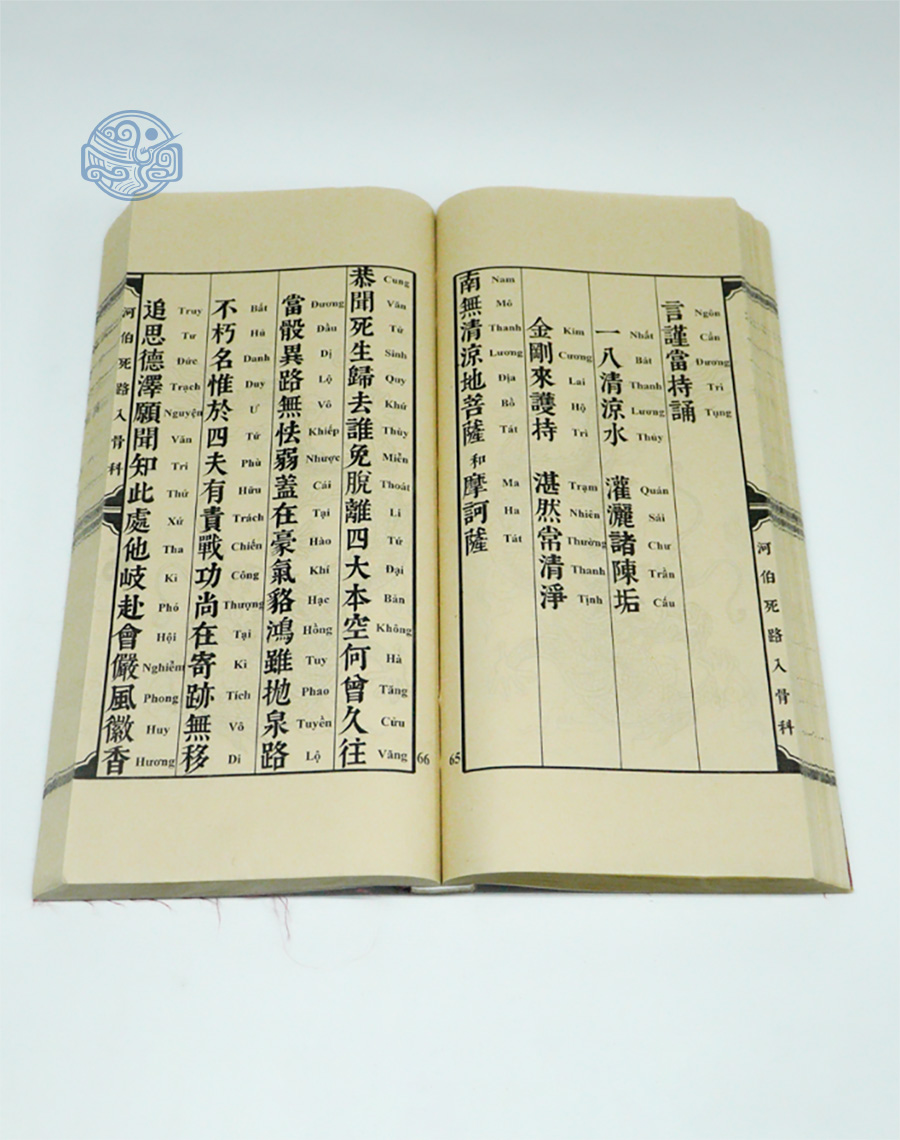 河伯死路入骨科
Ngôn Cẩn Đương Trì Tụng
言謹當持誦
Nhất Bát Thanh Lương Thủy Quán Sái Chư Trần Cấu
一八清涼水 灌灑諸陳垢
Kim Cương Lai Hộ Trì Trạm Nhiên Thường Thanh Tịnh
金剛來護持 湛然常清淨
Nam Mô Thanh Lương Địa Bồ Tát Ma Ha Tát
南無清涼地菩薩和摩訶薩
65
66
Cung Văn Tử Sinh Quy Khứ Thùy Miễn Thoát Li Tứ Đại Bản Không Hà Tăng Cửu Vãng
恭聞死生歸去誰免脫離四大本空何曾久往
Đương Đầu Dị Lộ Vô Khiếp Nhược Cái Tại Hào Khí Hạc Hồng Tuy Phao Tuyền Lộ
當骰異路無怯弱蓋在豪氣貉鴻雖拋泉路
Bất Hủ Danh Duy Ư Tứ Phù Hữu Trách Chiến Công Thượng Tại Kì Tích Vô Di
不朽名惟於四夫有責戰功尚在寄跡無移
Truy Tư Đức Trạch Nguyện Văn Tri Thử Xứ Tha Kì Phó Hội Nghiễm Phong Huy Hương
追思德澤願聞知此處他岐赴會儼風徽香
河伯死路入骨科